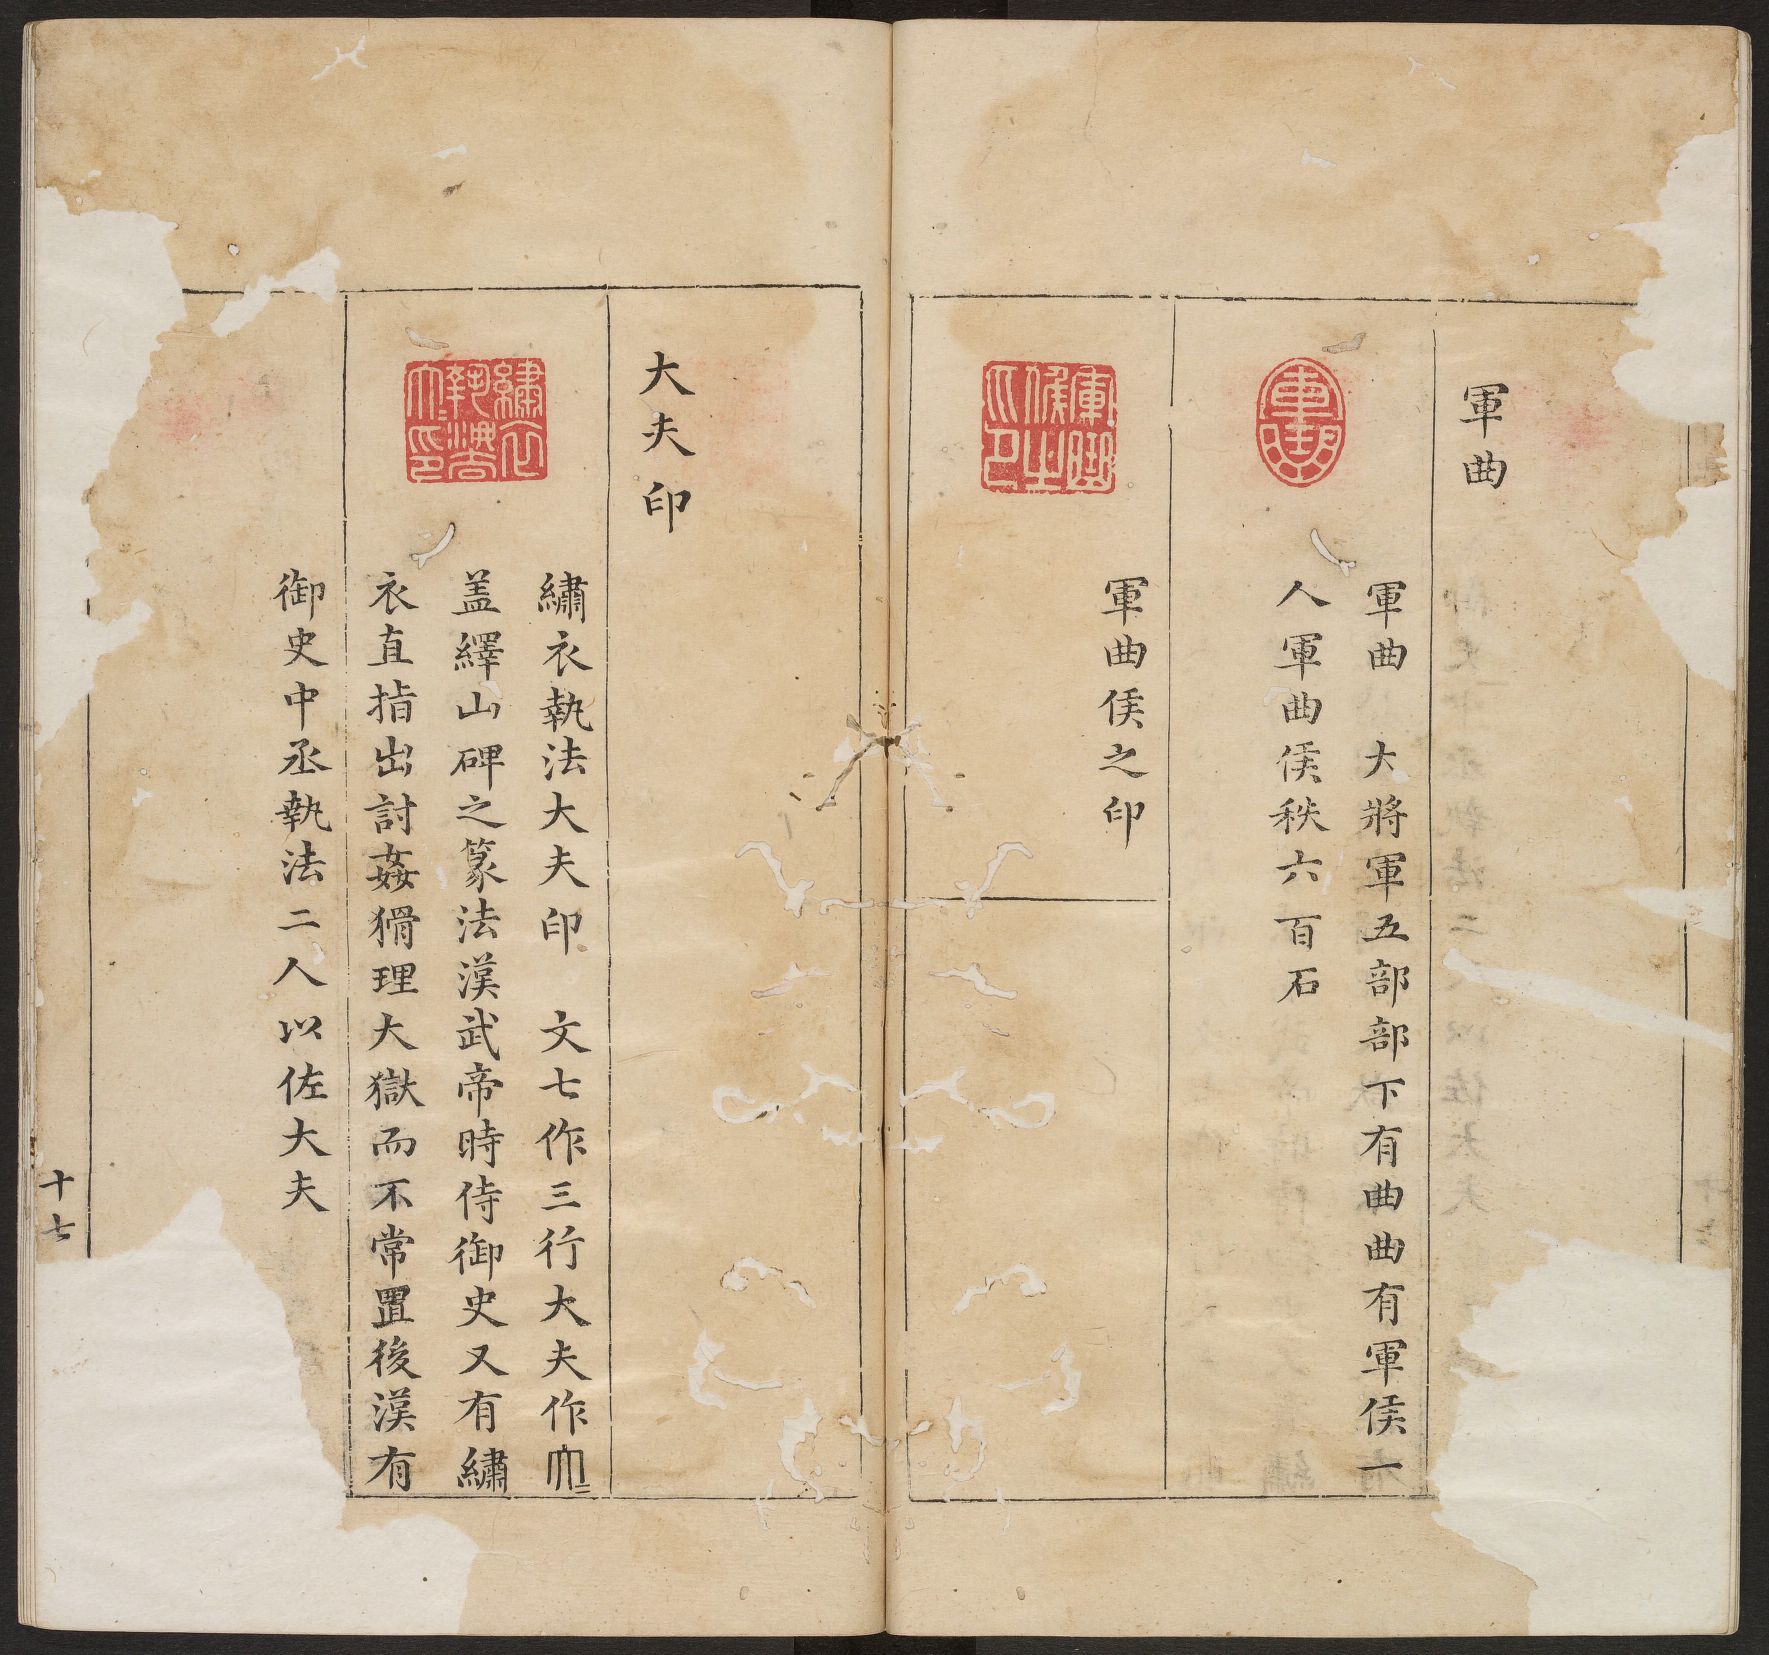 軍曲
軍曲 大將軍五部部下有曲曲有軍侯一
人軍曲侯秩六百石
軍曲侯之印
大夫印
繡衣執法大夫印 文七作三行大夫作
蓋繹山碑之篆法漢武帝時侍御史又有繡
衣直指出討姦猾理大獄而不常置後漢有
御史中丞執法二人以佐大夫
繡衣執法大夫印
十七